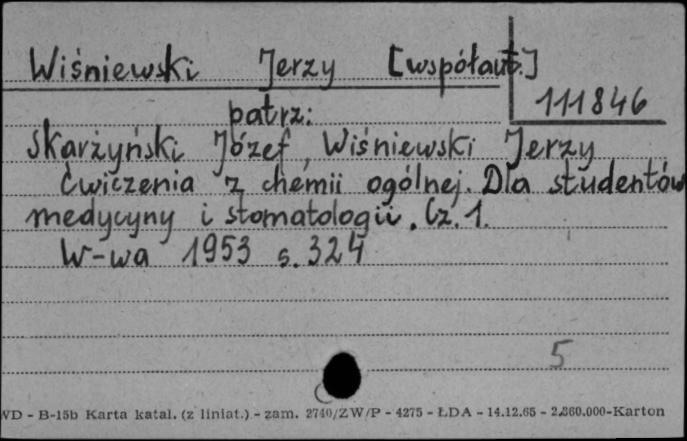 Wiśniewski Jerzy [współaut.]
111846
patrz:
Skarżyński Józef, Wiśniewski Jerzy
Ćwiczenia z chemii ogólnej. Dla studentów
medycyny i stomatologii. Cz. 1.
W-wa 1953 s. 324
5
WD - B-15b Karta katal. (z liniat.) - zam. 2740/ZW/P - 4275 - ŁDA - 14.12.65 - 2.860.000-Karton